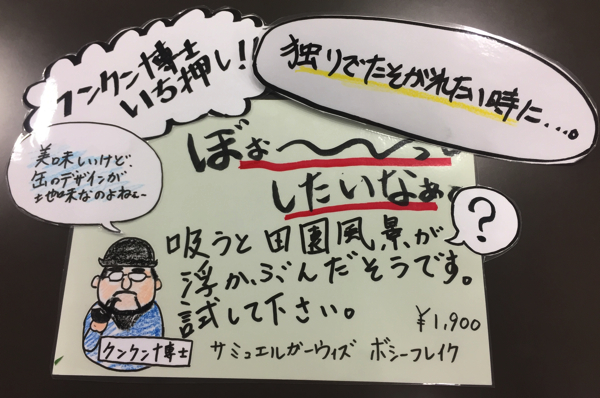 クンクン博士
いち押し!!
独りでたそがれたい時に…。
美味しいけど、
缶のデザインが
地味なのよねぇ~
ぼぉ〜〜っと
したいなぁ。
?
吸うと田園風景が
浮かぶんだそうです。
試して下さい。
¥1,900
クンクン博士
サミュエルガーウィズ ボシーフレイク